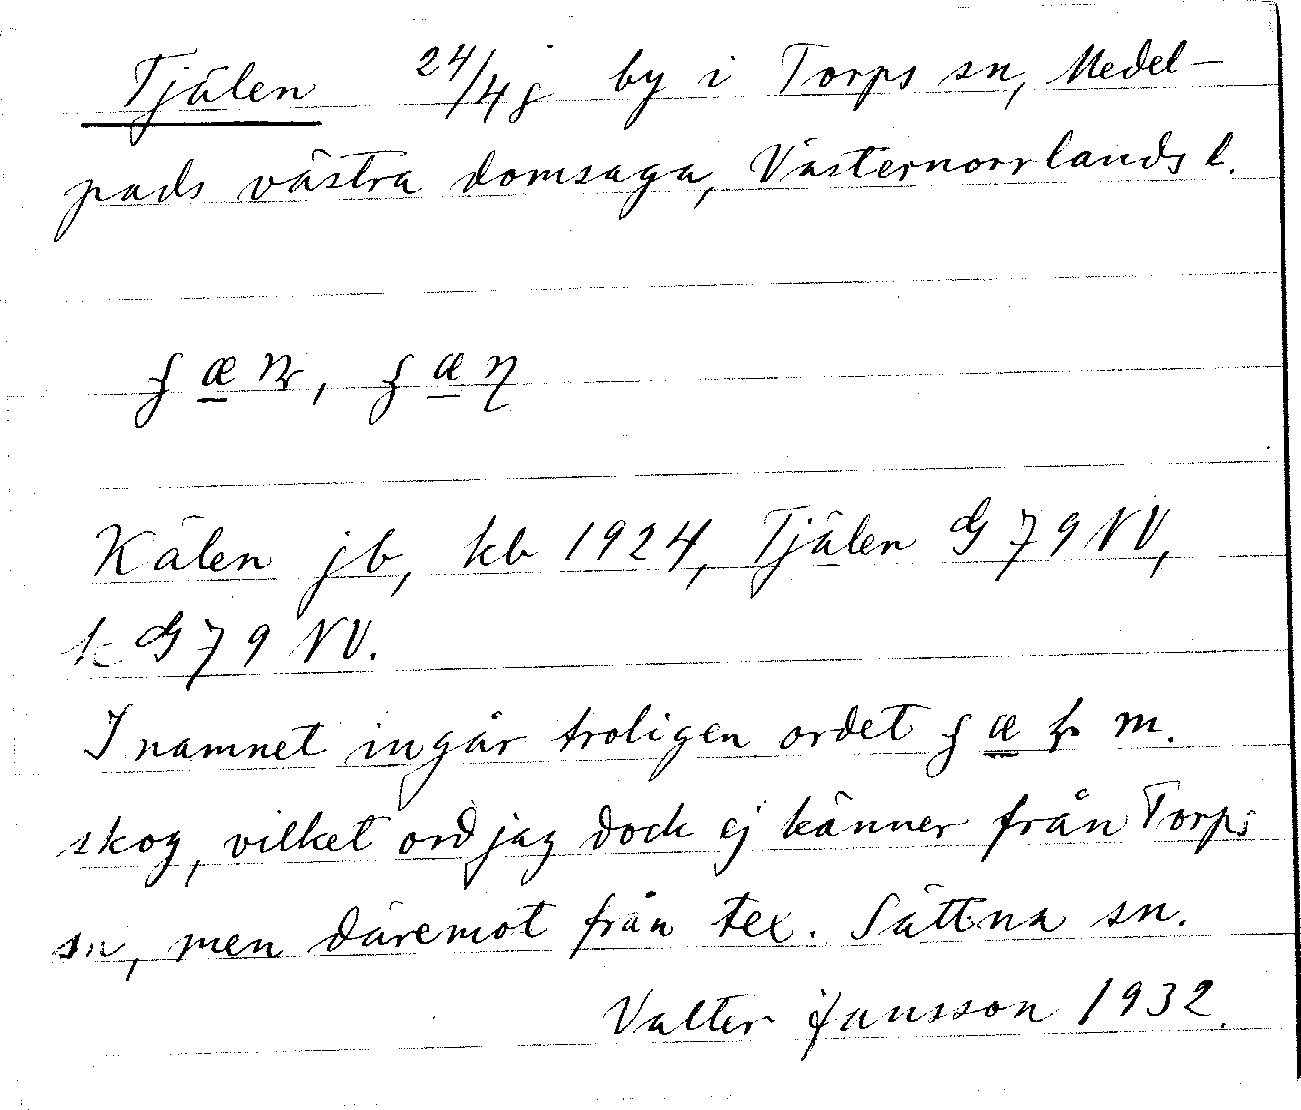 Tjälen 24/4g by i Torps sn, Medel-
pads västra domsaga, Västernorrlands l.
Kälen jb, kb 1924, Tjälen G 79 NV,
k G 79 NV.
I namnet ingår troligen ordet m.
skog, vilket ord jag dock ej känner från Torps
sn, men däremot från tex. Sättna sn.
Valter Jansson 1932.